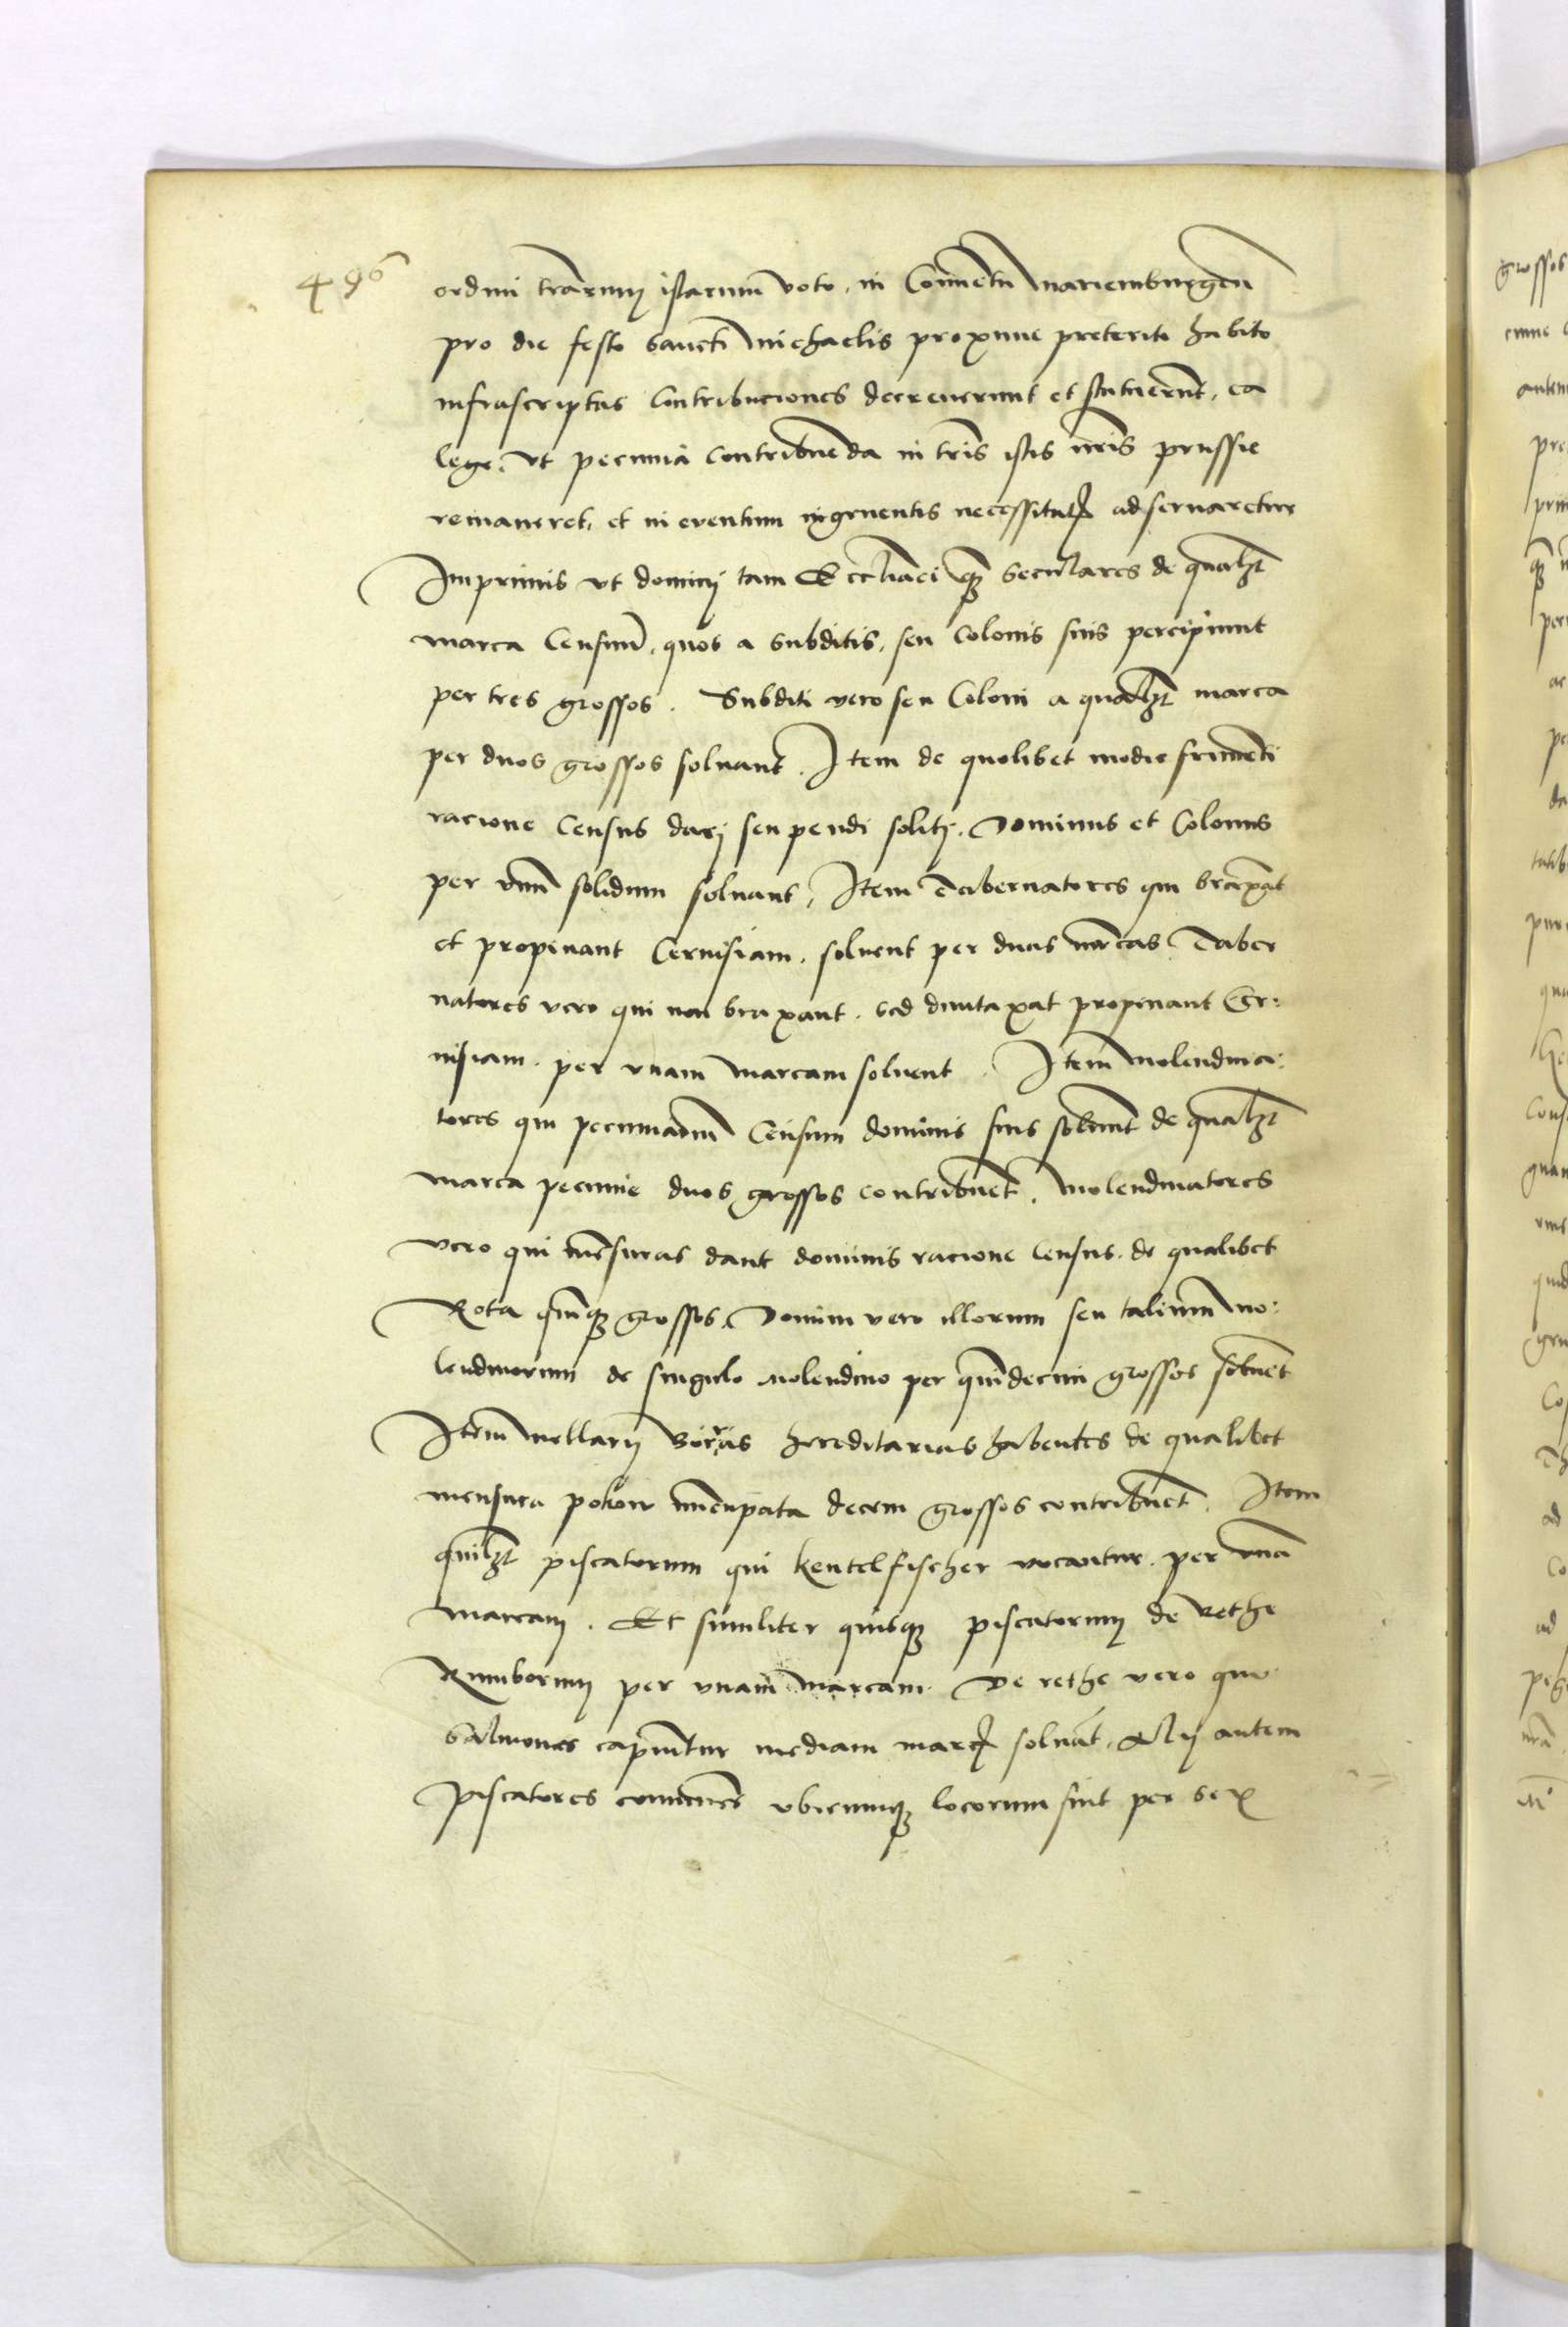 496
ordini tr̄arum istarum voto, in Conuentu Mariemburgen̄
pro die festo Sancti Michaelis proxime preteriti habito
infrascriptas Contribuciones decreuerunt et statuerunt, ea
lege, vt pecunia contribuenda in tr̄is istis nr̄is prussie
remaneret, et in euentum ingruentis necessitatis adseruaretur
Imprimis vt dominij tam Eccl̄iaci qꝫ Seculares de qualꝫt
marca Censuum, quos a subditis, seu Colonis suis percipiunt
per tres grossos. Subditi vero seu Coloni a qualꝫt marca
per duos grossos soluant. Item de quolibet modio frumenti
racione Census darj seu pendi solitj, Dominus et Colonus
per vnū solidum soluant, Item Tabernatores qui braxāt
et propinant Ceruisiam, soluent per duas marcas Taber
natores vero qui non braxant, sed duntaxat propinant Cer:
uisiam, per vnam marcam soluent. Item Molendina:
tores qui pecuniariū Censum dominis suis soluunt de qualꝫt
marca pecunie duos grossos contribuēt. Molendinatores
vero qui mēsuras dant dominis racione Census, de qualibet
Rota quīqꝫ grossos, Domini vero illorum seu talium mo:
lendinorum de singulo Molendino per quīdecim grossos soluēt
Item Mellarij borras hereditarias habentes de qualibet
mensura pokow nūcupata decem grossos contribuēt. Item
quilꝫt piscatorum qui kentelfischer vocantur, per vnā
marcam. Et similiter quisqꝫ piscatorum de rethe
Rumborum per vnam marcam. De rethe vero quo
Salmones capiuntur mediam marcā soluāt. Alij autem
Piscatores cōmunes vbicunqꝫ locorum sint per sex